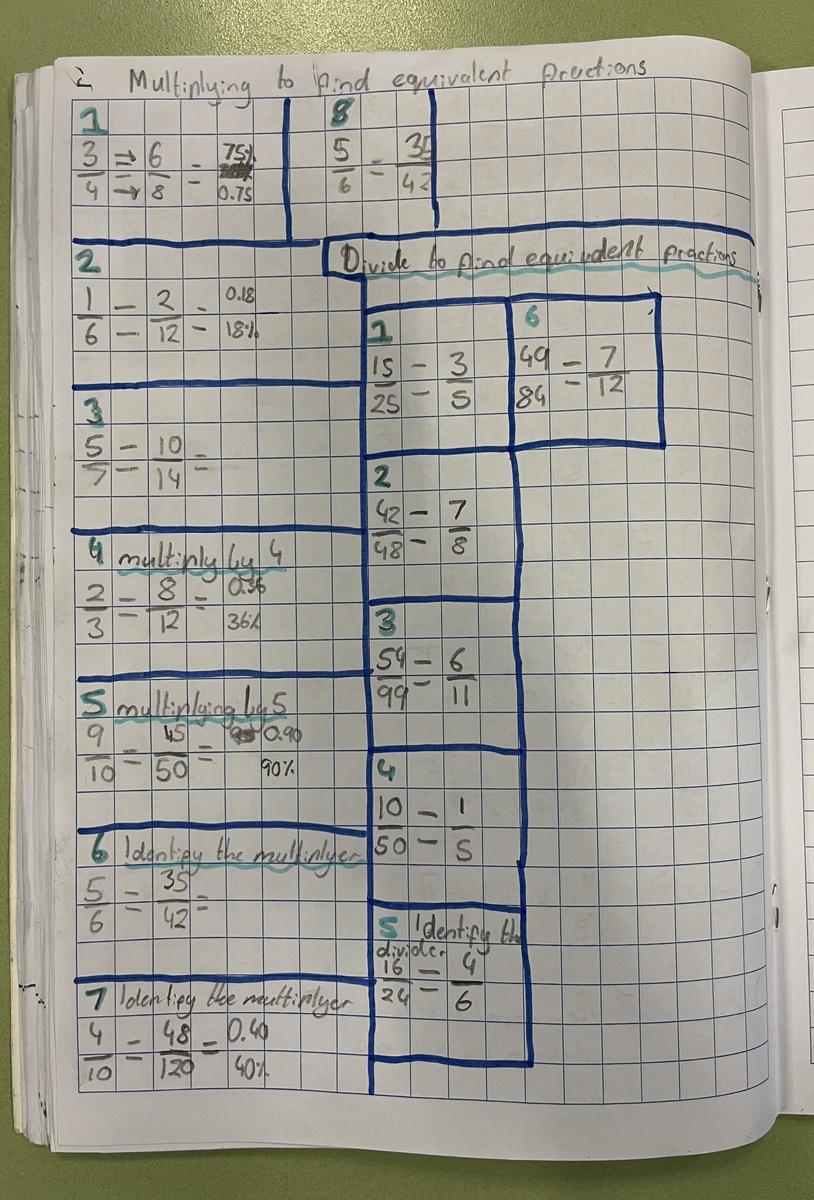 Multiplying to find equivalent fractions
1
3/4 = 6/8 = 75% 0.75
8
5/6 = 35/42
2
1/6 = 2/12 = 0.18 18%
3
5/7 = 10/14 =
4 multiply by 4
2/3 = 8/12 = 0.36 36%
5 multiplying by 5
9/10 = 45/50 = 0.90 90%
6 Identify the multiplyer
5/6 = 35/42 =
7 Identify the multiplyer
4/10 = 48/120 = 0.40 40%
Divide to find equivalent fractions
1
15/25 = 3/5
6
49/84 = 7/12
2
42/48 = 7/8
3
54/99 = 6/11
4
10/50 = 1/5
5 Identify the
divider
16/24 = 4/6